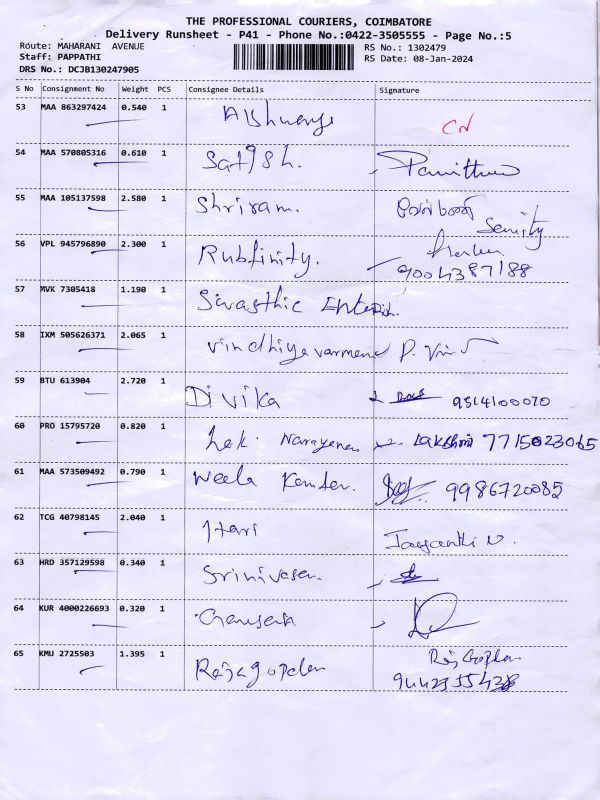 THE PROFESSIONAL COURIERS, COIMBATORE
Delivery Runsheet - P41 - Phone No.:0422-3505555 - Page No.:5
Route: MAHARANI AVENUE RS No.: 1302479
Staff: PAPPATHI RS Date: 08-Jan-2024
DRS No.: DCJB130247905
S No Consignment No Weight PCS Consignee Details Signature
53 MAA 863297424 0.540 1 CN
54 MAA 570805316 0.610 1 Satish.
55 MAA 105137598 2.580 1 Shriram.
Security
56 VPL 945796890 2.300 1 Rubfinity.
9004387188
57 MVK 7305418 1.190 1 Sivasthic
58 IXM 505626371 2.065 1 Vindhiyavarmene
59 BTU 613904 2.720 1 Divika 9514100070
60 PRO 15795720 0.820 1 Narayenen Lakshmi 7715023065
61 MAA 573509492 0.790 1 9986720085
62 TCG 40798145 2.040 1 Hari Jayanthi N.
63 HRD 357129598 0.340 1 Srinivasen.
64 KUR 4000226693 0.320 1
65 KMU 2725503 1.395 1 Rajagopalan